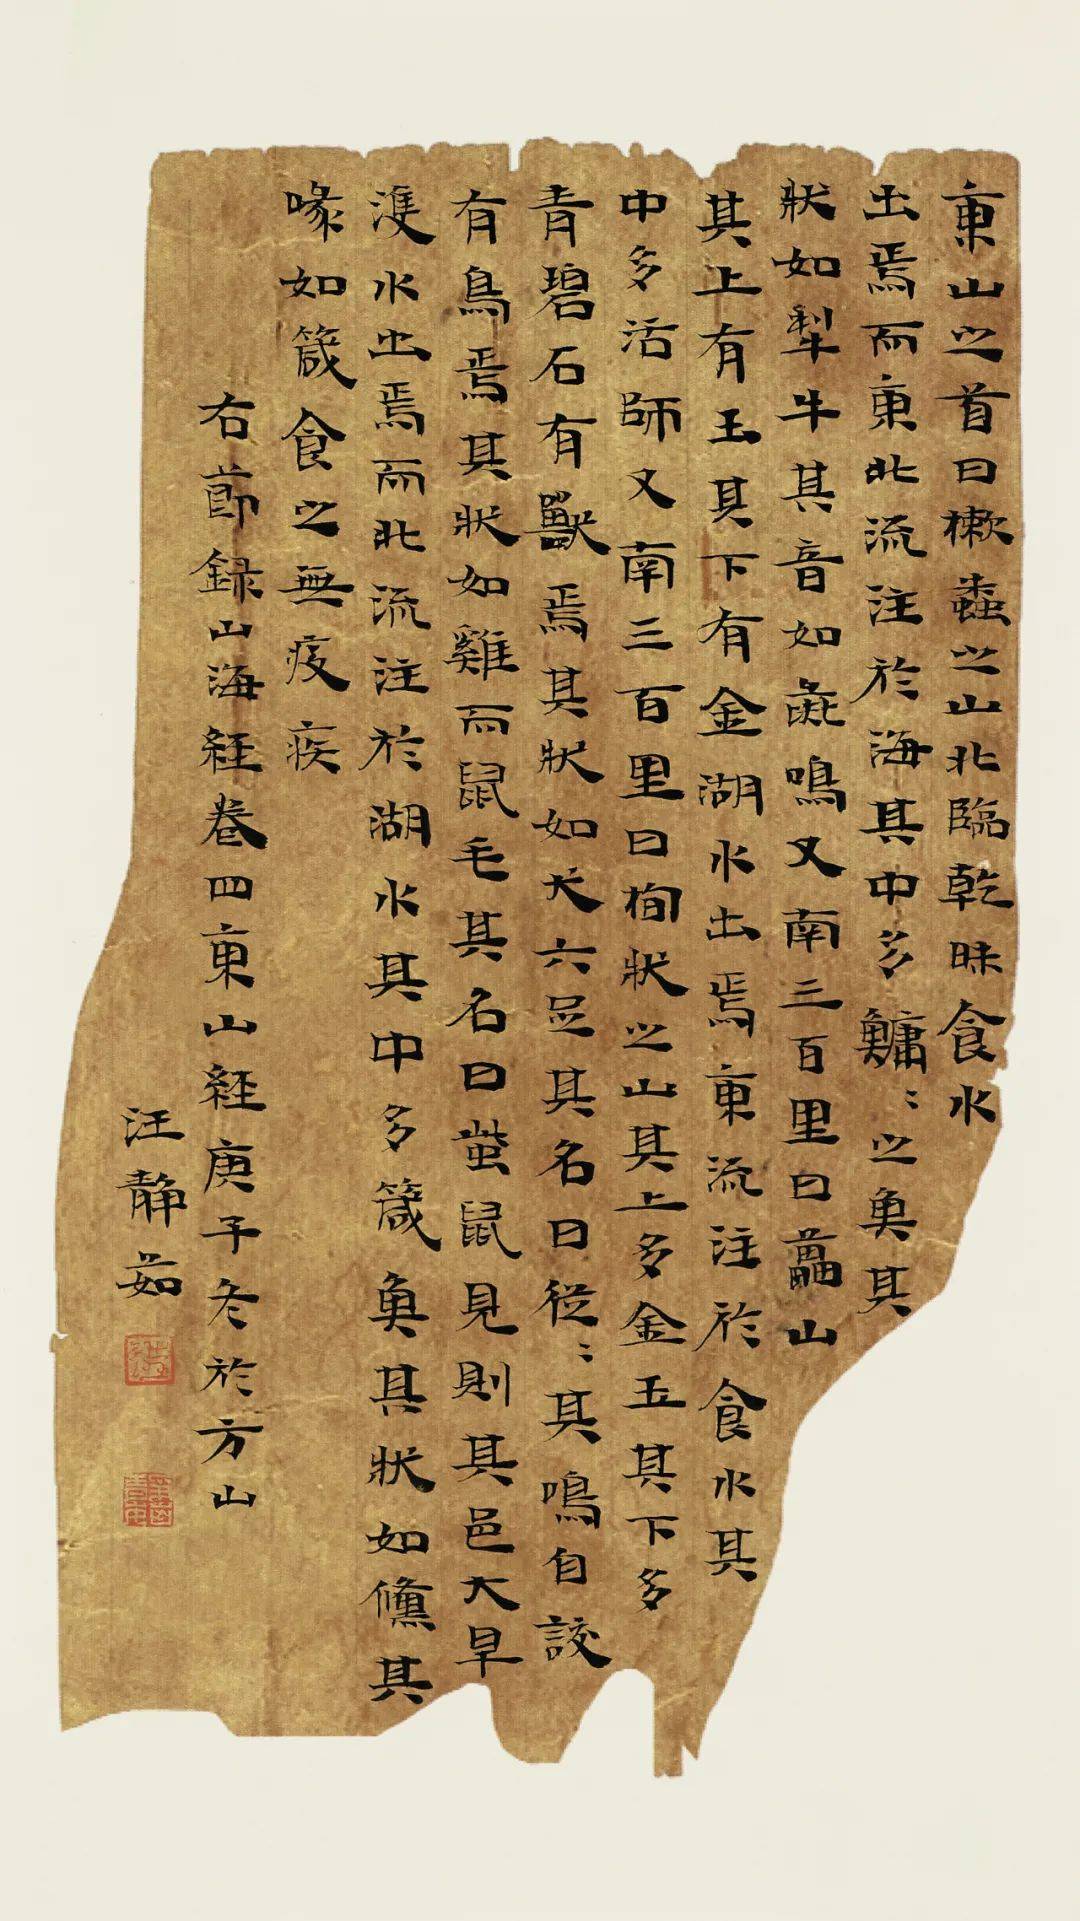 東山之首曰樕𧑤之山北臨乾昧食水
出焉而東北流注於海其中多鱅〻之魚其
狀如犁牛其音如彘鳴又南三百里曰藟山
其上有玉其下有金湖水出焉東流注於食水其
中多活師又南三百里曰栒狀之山其上多金玉其下多
青碧石有獸焉其狀如犬六足其名曰從〻其鳴自詨
有鳥焉其狀如雞而鼠毛其名曰蚩鼠見則其邑大旱
水出焉而北流注於湖水其中多箴魚其狀如儵其
喙如箴食之無疫疾
右節錄山海經卷四東山經庚子冬於方山
汪靜茹